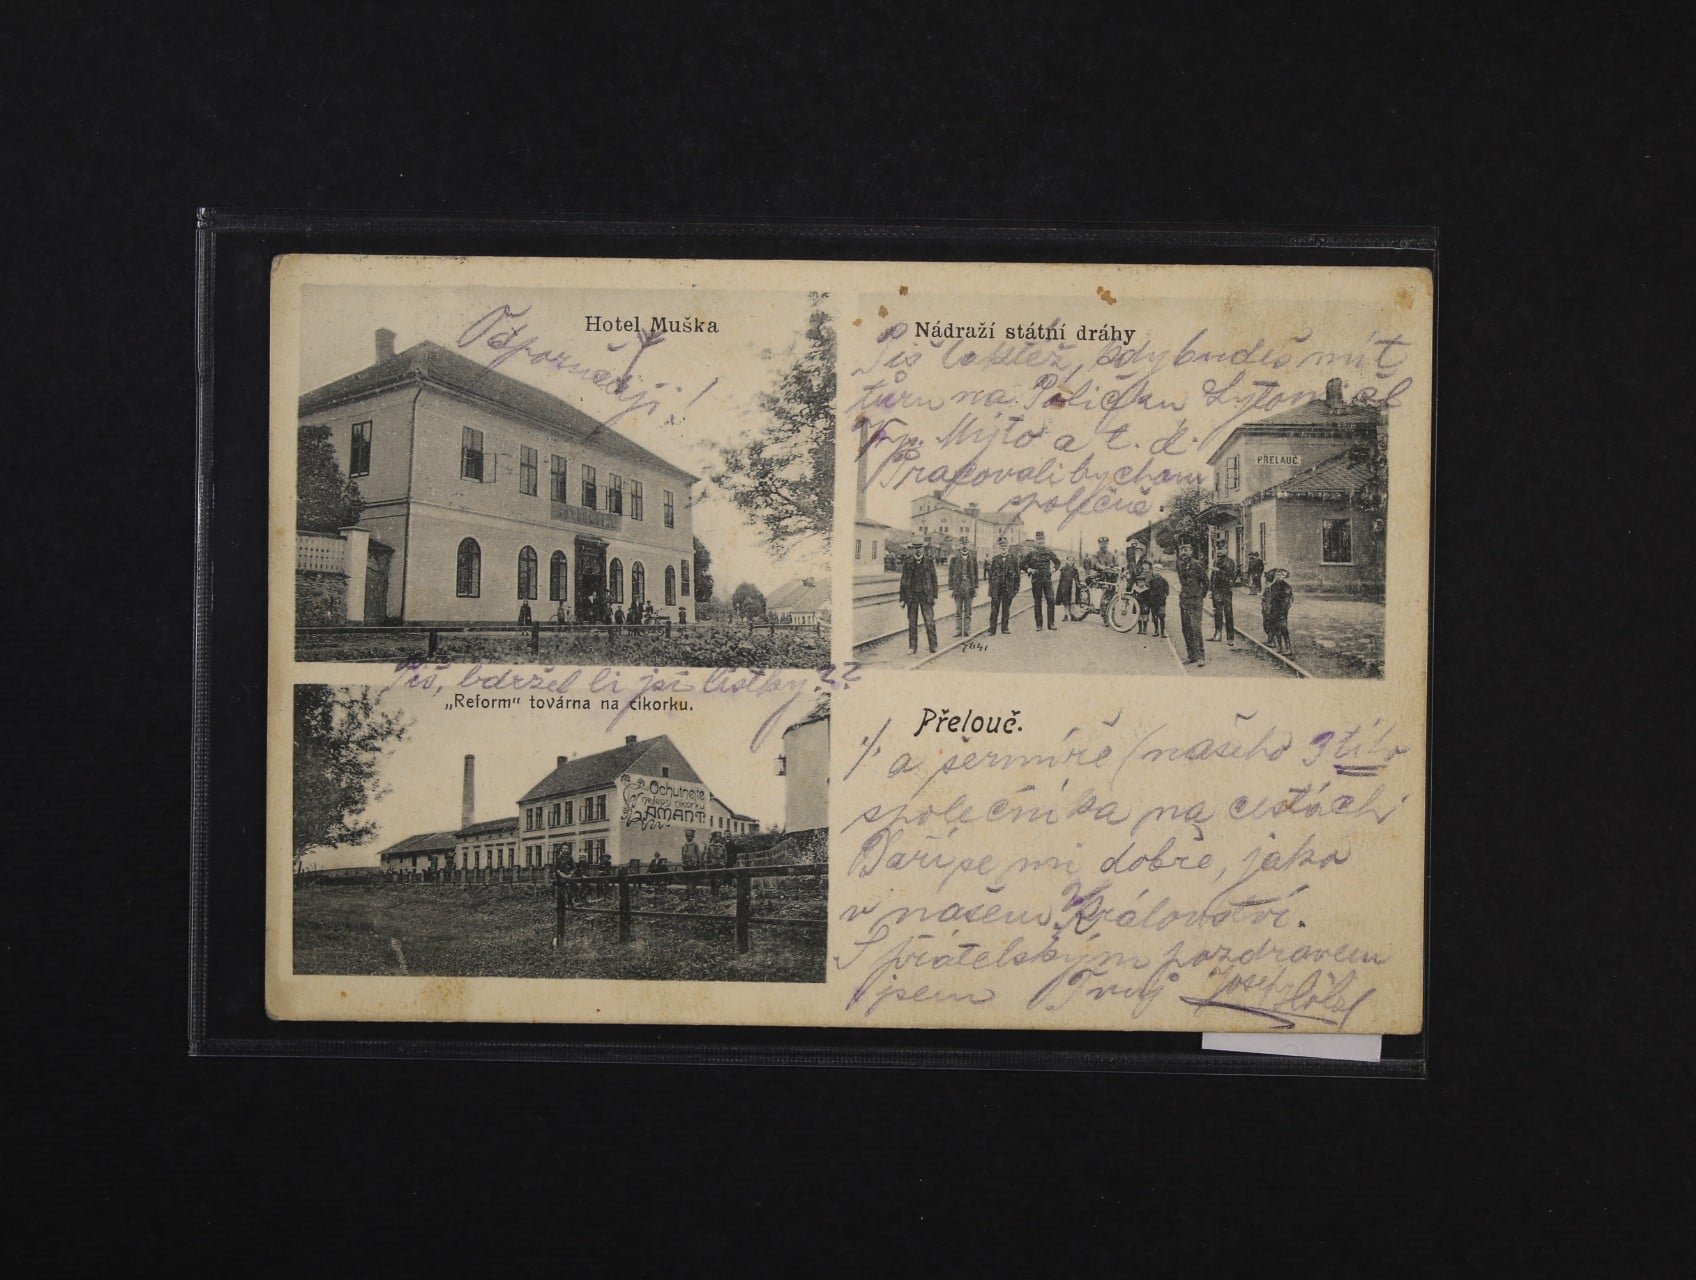 Hotel Muška
Odporučuji!
Nádraží státní dráhy
Piš taktéž, kdy budeš mít
túru na Poličku Lytomišl
V. Mýto a t. d.
Pracovali bychom
společně.
PŘELAUČ.
7441
Piš, obdržel li jsi lístky??
„Reform“ továrna na cikorku.
Ochutnejte
nejlepší cikorku
AMANT.
Přelouč.
a šermíře (našeho 3tího
společníka na cestách
Daří se mi dobře, jako
v našem Království.
S přátelským pozdravem
jsem Tvůj Josef